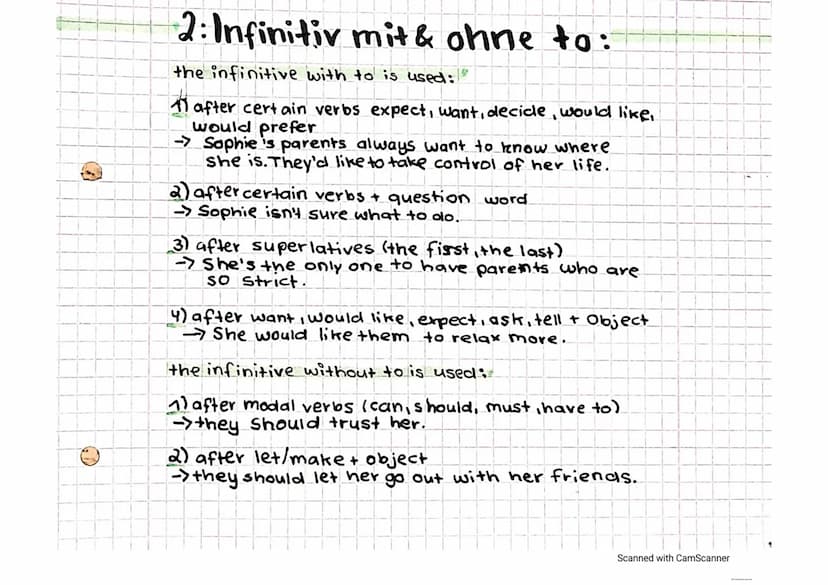 2: Infinitiv mit & ohne to:
the infinitive with to is used:
1) after certain verbs expect, want, decide, would like,
would prefer
→ Sophie's parents always want to know where
she is. They'd like to take control of her life.
2) after certain verbs + question word
→ Sophie isn't sure what to do.
3) after superlatives (the first, the last)
→ She's the only one to have parents who are
so strict.
4) after want, would like, expect, ask, tell + Object
→ She would like them to relax more.
the infinitive without to is used:
1) after modal verbs (can, should, must, have to)
→ they should trust her.
2) after let/make + object
→ they should let her go out with her friends.
Scanned with CamScanner